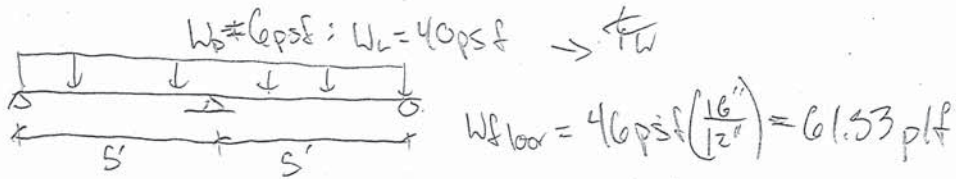 W_D = 6psf ; W_L = 40psf →
5' 5'
W_floor = 46psf (16" / 12") = 61.33 plf